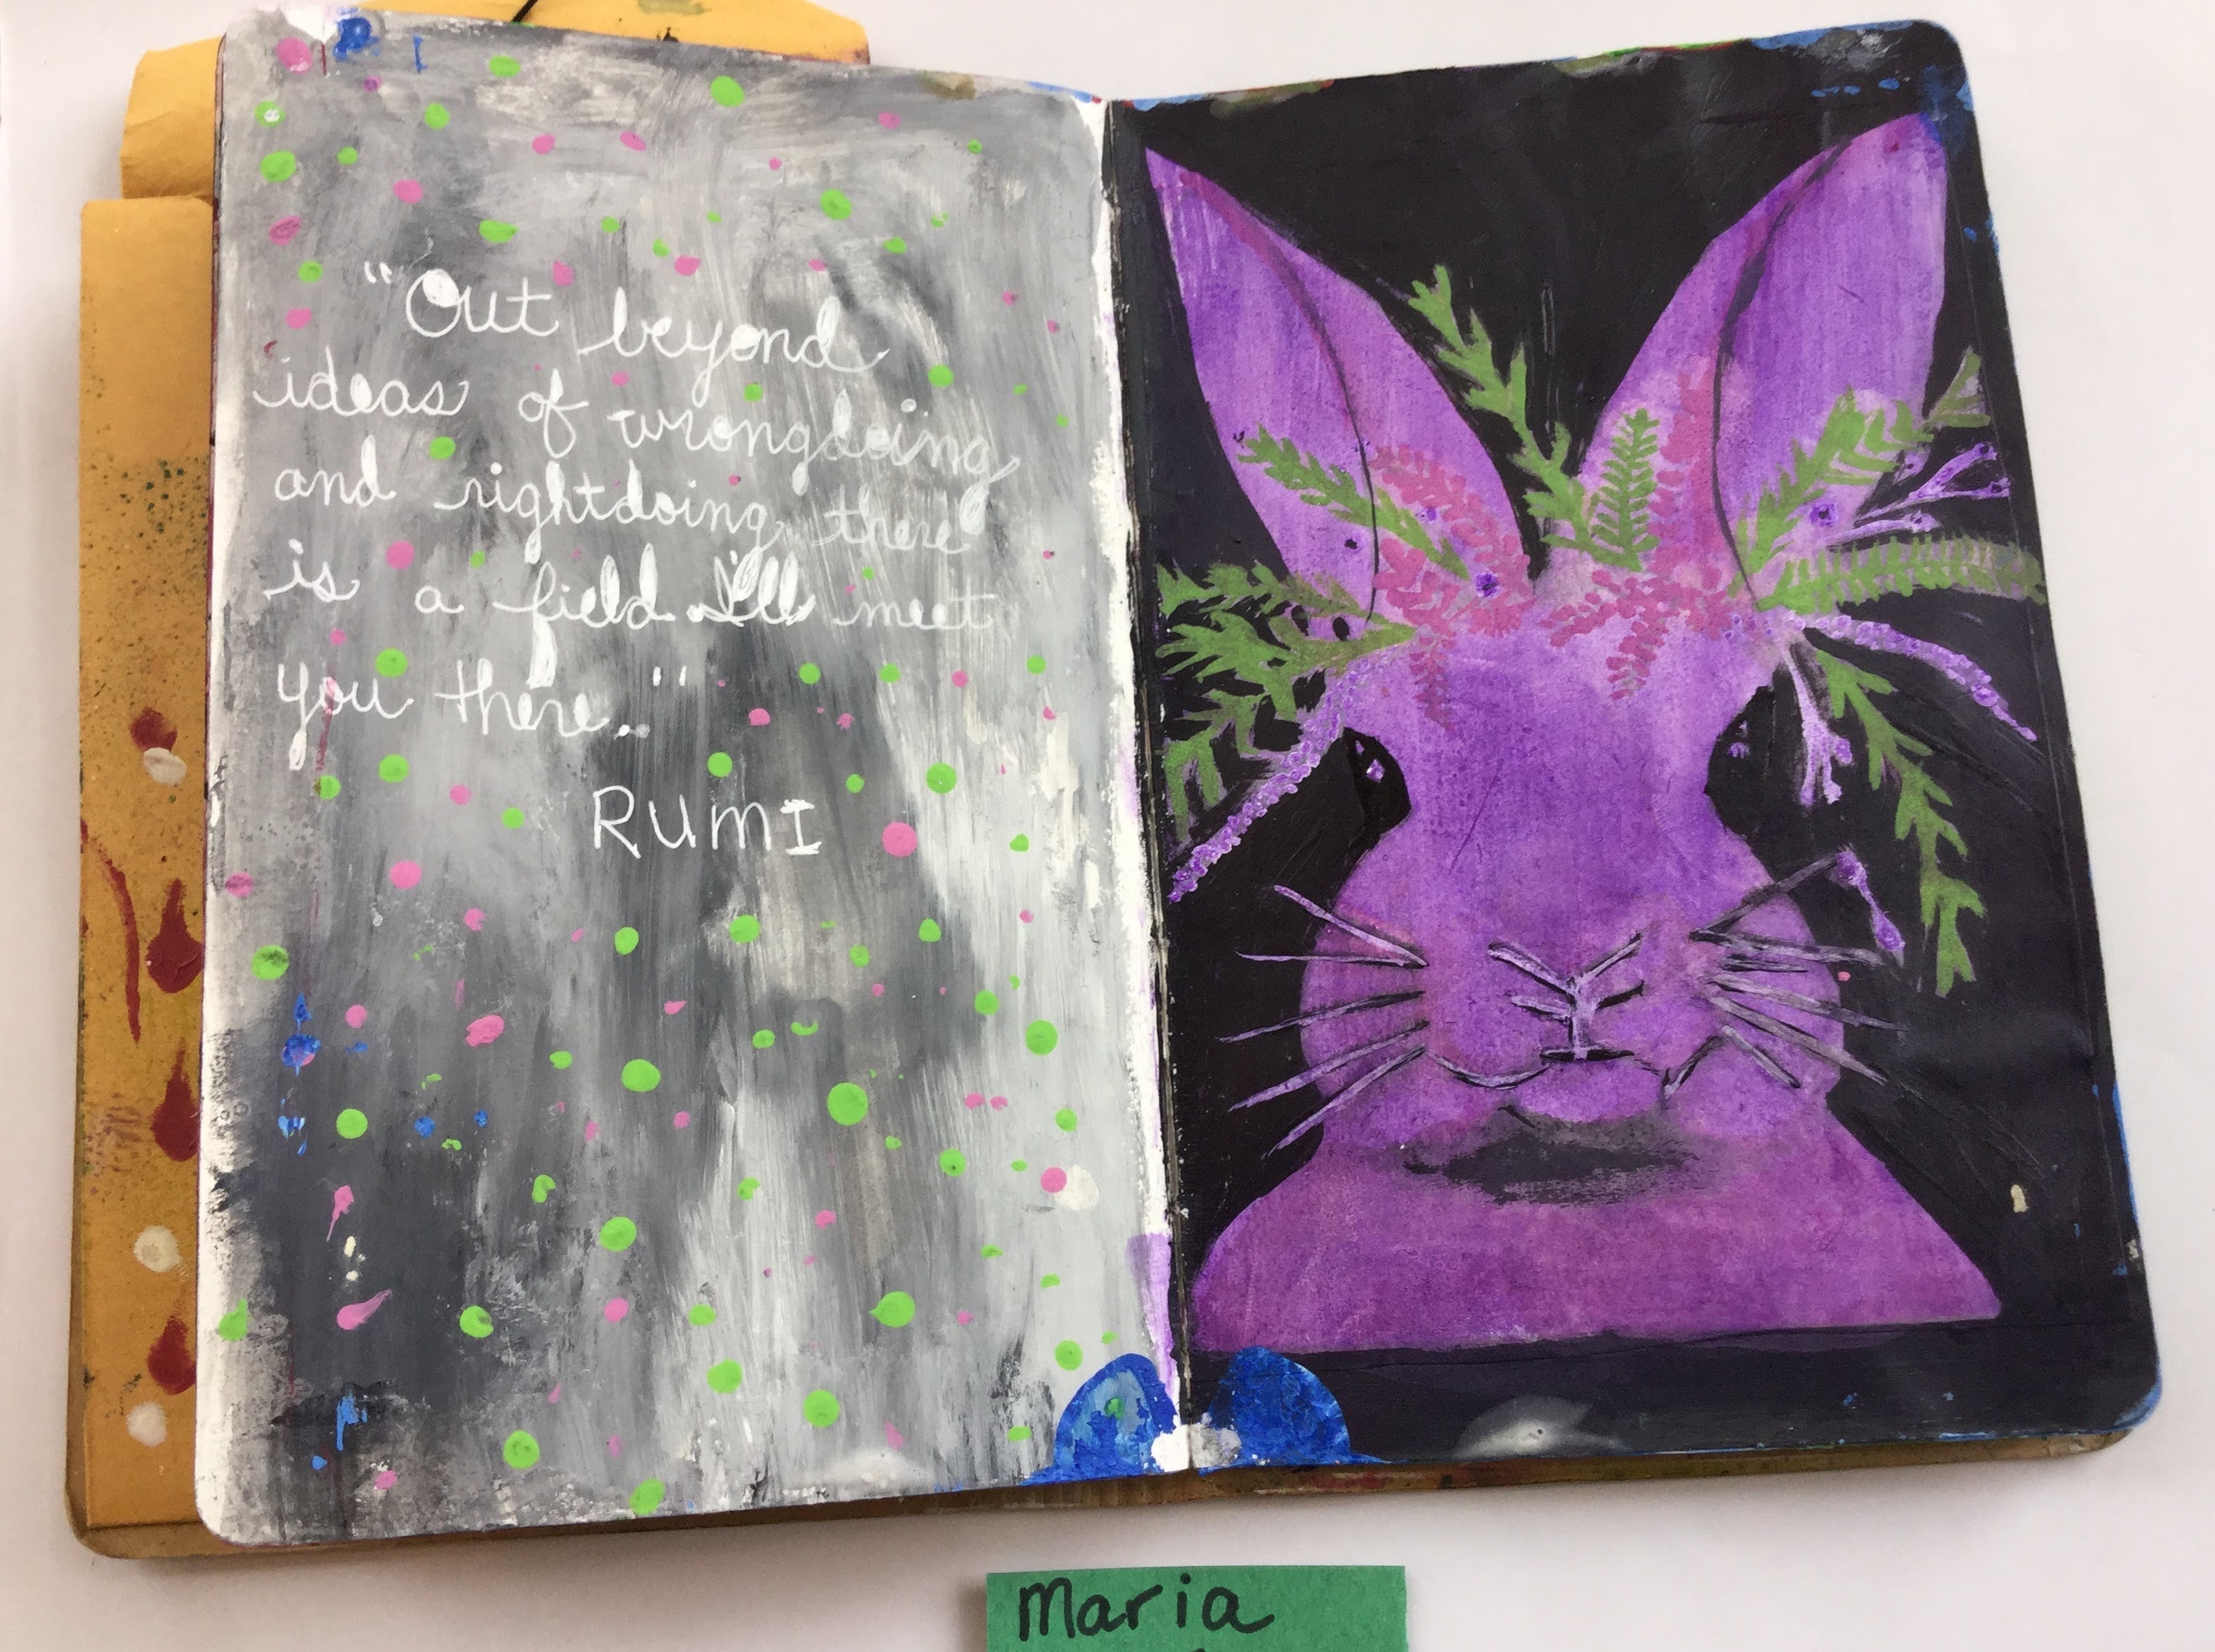 "Out beyond
ideas of wrongdoing
and rightdoing there
is a field. I'll meet
you there."
RUMI
Maria